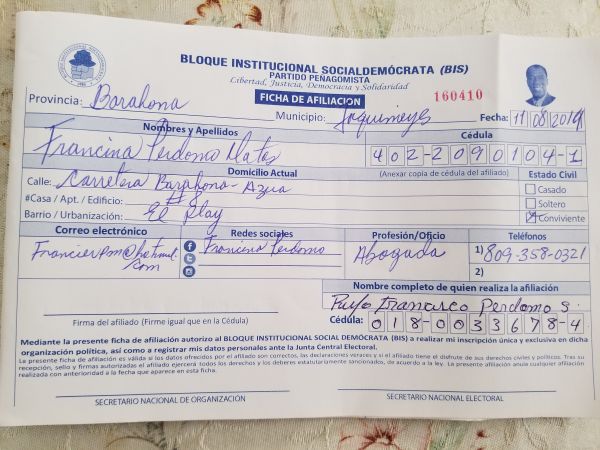 BLOQUE INSTITUCIONAL SOCIALDEMÓCRATA (BIS)
PARTIDO PEÑAGOMISTA
Libertad, Justicia, Democracia y Solidaridad
FICHA DE AFILIACIÓN
160410
Provincia: Barahona Municipio: Jaquimeyes Fecha: 11/08/2019
Nombres y Apellidos Cédula
Francina Perdomo Matos 402-2090104-1
Domicilio Actual (Anexar copia de cédula del afiliado) Estado Civil
Calle: Carretera Barahona-Azua Casado
#Casa / Apt. / Edificio: #8 Soltero
Barrio / Urbanización: El Play Conviviente
Correo electrónico Redes sociales Profesión/Oficio Teléfonos
Francina Perdomo Abogada 1) 809-358-0321
.com 2)
Nombre completo de quien realiza la afiliación
Francisco Perdomo S.
Firma del afiliado (Firme igual que en la Cédula) Cédula: 018-0033678-4
Mediante la presente ficha de afiliación autorizo al BLOQUE INSTITUCIONAL SOCIAL DEMÓCRATA (BIS) a realizar mi inscripción única y exclusiva en dicha
organización política, así como a registrar mis datos personales ante la Junta Central Electoral.
La presente ficha de afiliación es válida a los datos ofrecidos por el afiliado son correctos, las declaraciones veraces y si el afiliado tiene el disfrute de sus derechos civiles y políticos. Tras su
recepción, sello y firmas autorizadas el afiliado ejercerá todos los derechos y los deberes estatutariamente sancionados, de acuerdo a la ley. La presente afiliación anule cualquier afiliación
realizada con anterioridad a la fecha que aparece en esta ficha.
SECRETARIO NACIONAL DE ORGANIZACIÓN SECRETARIO NACIONAL ELECTORAL